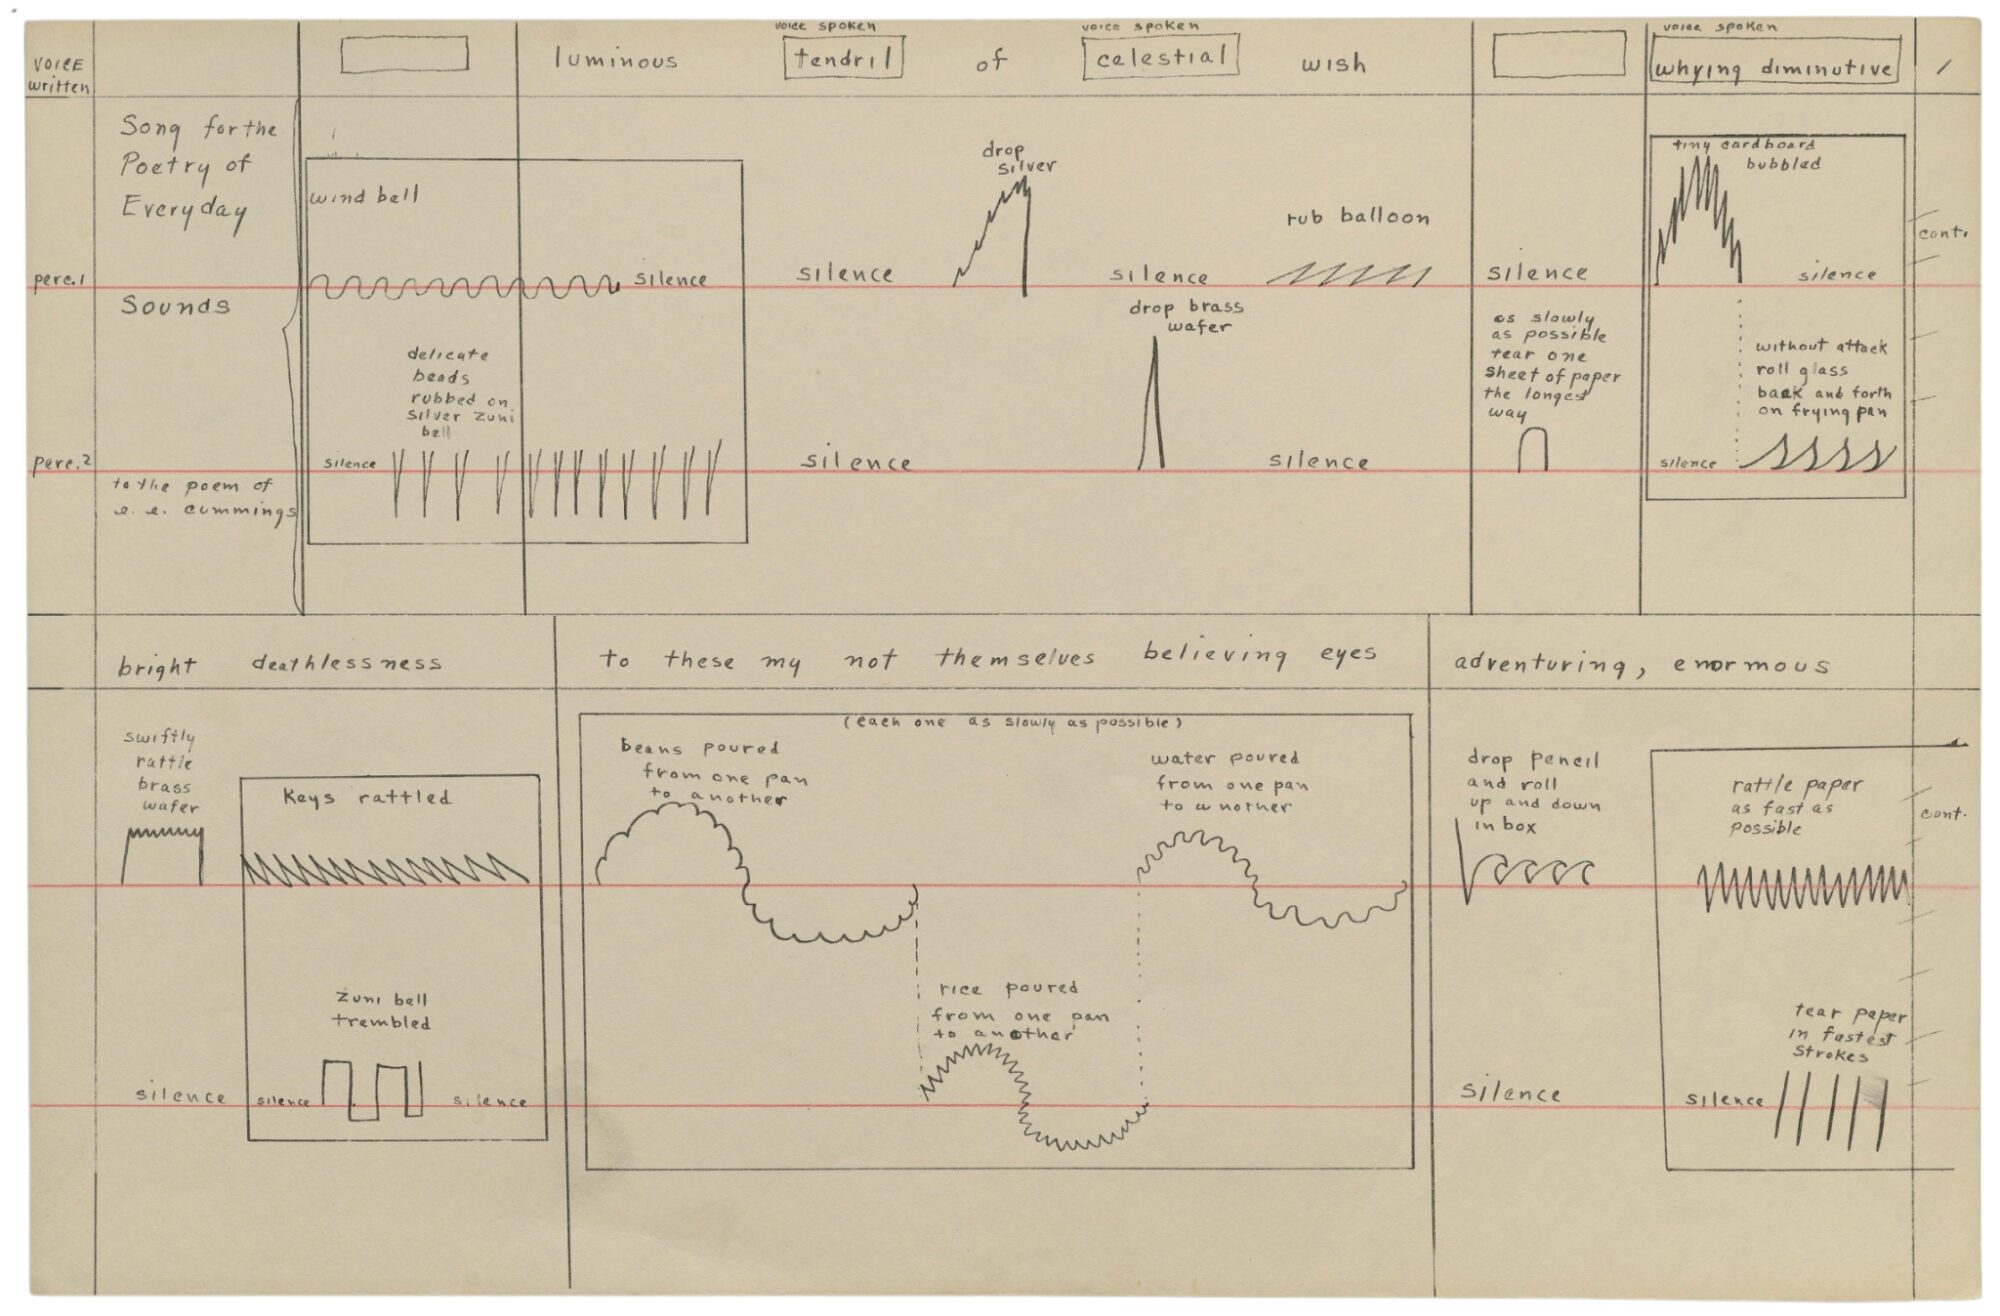 voice spoken
voice spoken
voice spoken
VOICE
written
luminous
tendril
of
celestial
wish
whying diminutive
/
Song for the
Poetry of
Everyday
wind bell
drop
silver
rub balloon
tiny cardboard
bubbled
cont.
perc.1
silence
silence
silence
silence
silence
Sounds
drop brass
wafer
as slowly
as possible
tear one
sheet of paper
the longest
way
delicate
beads
rubbed on
silver zuni
bell
without attack
roll glass
back and forth
on frying pan
perc.2
silence
silence
silence
silence
to the poem of
e. e. cummings
bright deathlessness
to these my not themselves believing eyes
adventuring, enormous
swiftly
rattle
brass
wafer
Keys rattled
(each one as slowly as possible)
beans poured
from one pan
to another
water poured
from one pan
to another
drop pencil
and roll
up and down
in box
rattle paper
as fast as
possible
cont.
zuni bell
trembled
rice poured
from one pan
to another
tear paper
in fastest
strokes
silence
silence
silence
silence
silence